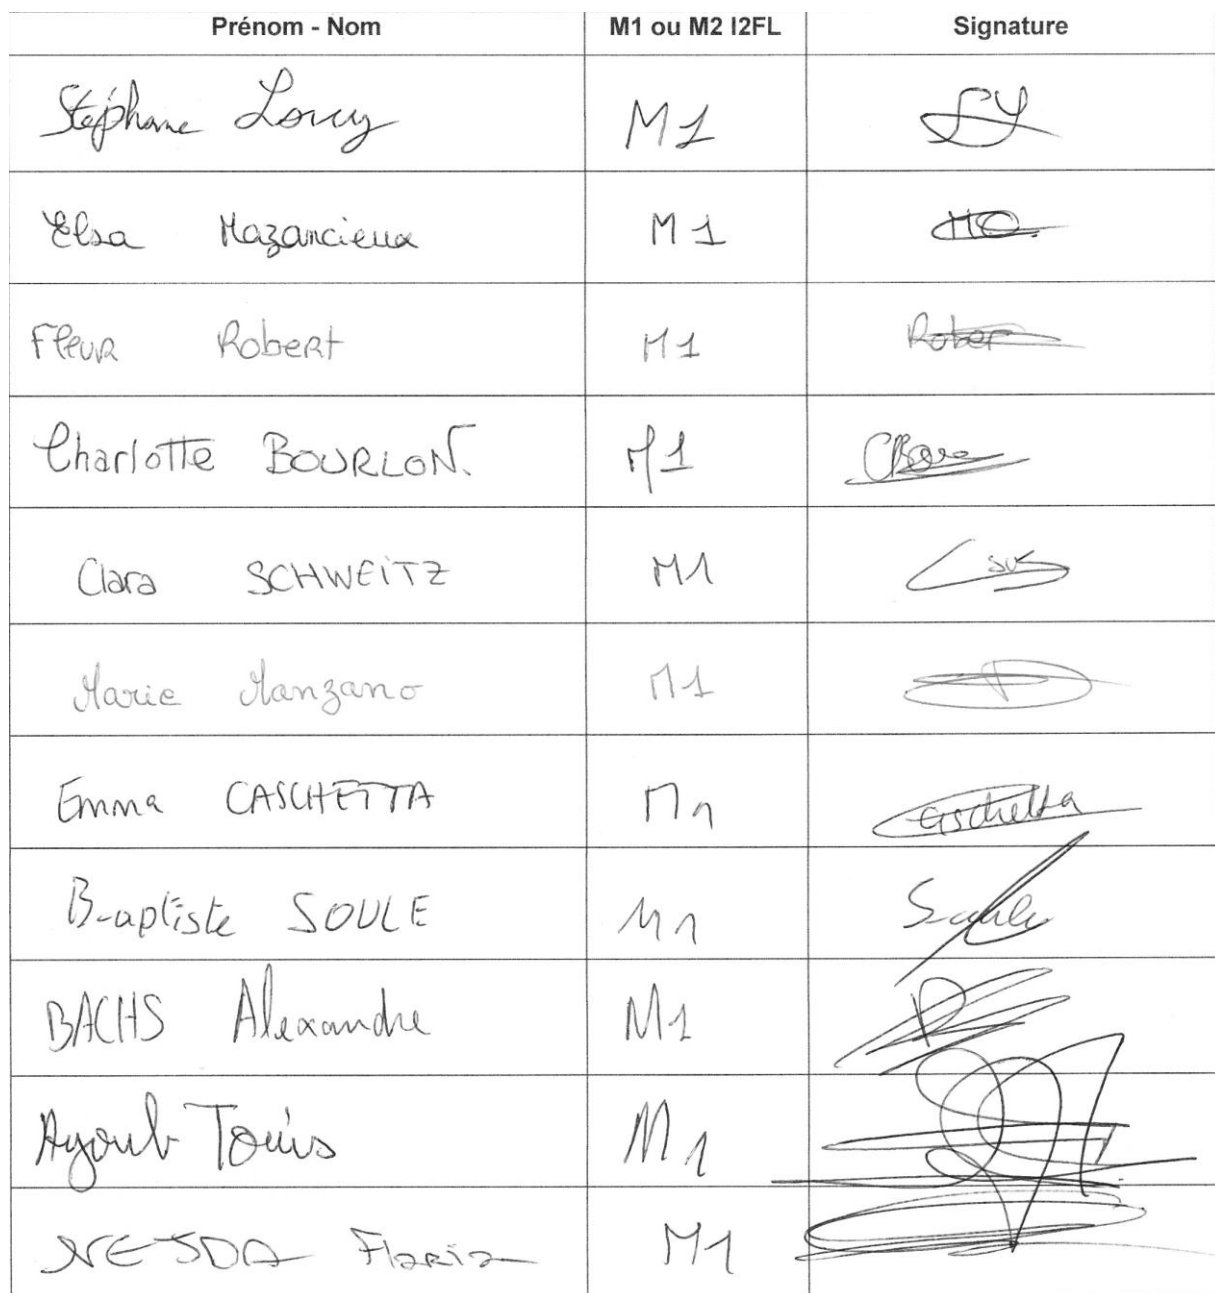 Prénom - Nom M1 ou M2 I2FL Signature
Stéphane M1
Elsa Mazancieux M1
Fleur Robert M1 Rober
Charlotte BOURLON. M1
Clara SCHWEITZ M1
Marie Manzano M1
Emma CASCHETTA M1 Caschetta
Baptiste SOULE M1 Soule
BACHS Alexandre M1
Ayoub M1
NEJDA M1